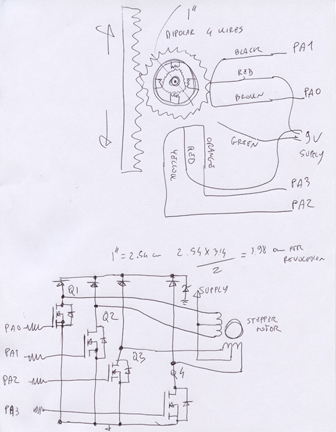 1"
BIPOLAR 4 WIRES
BLACK PA1
RED
BROWN PA0
GREEN 9V
SUPPLY
YELLOW
RED
ORANGE
PA3
PA2
1" = 2.54 cm 2.54 x 3.14 / 2 = 3.98 cm PER
REVOLUTION
Q1
SUPPLY
Q2
PA0
STEPPER
MOTOR
PA1
Q3
PA2
Q4
PA3